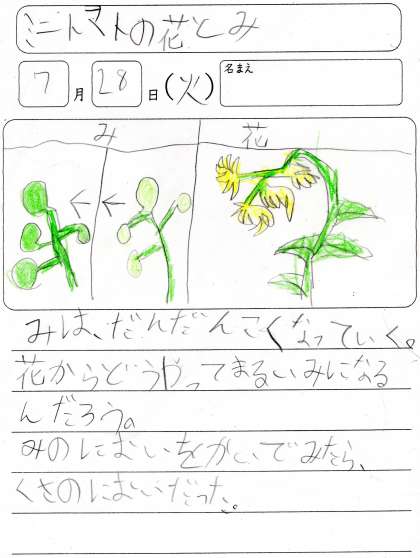 ミニトマトの花とみ
7月28日(火)
名まえ
み 花
みは、だんだんこくなっていく。
花からどうやってまるいみになる
んだろう。
みのにおいをかいでみたら、
くさのにおいだった。